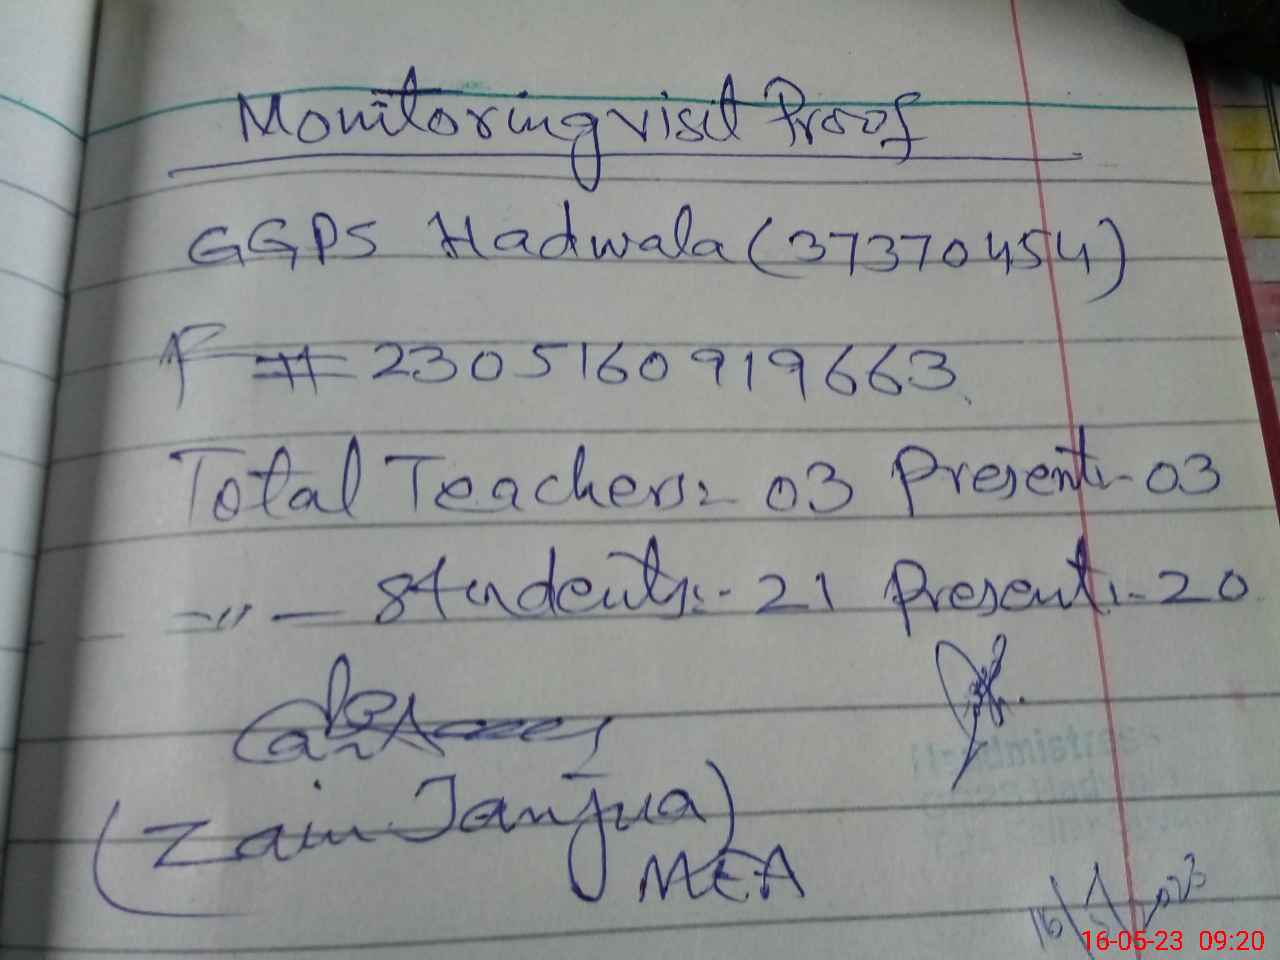 Monitoring visit Proof
GGPS Hadwala (37370454)
F # 2305160919663.
Total Teachers:- 03 Present:- 03
-"- Students:- 21 Present:- 20
Headmistress
(Zain Janjua)
MEA
16/5/2023
16-05-23 09:20